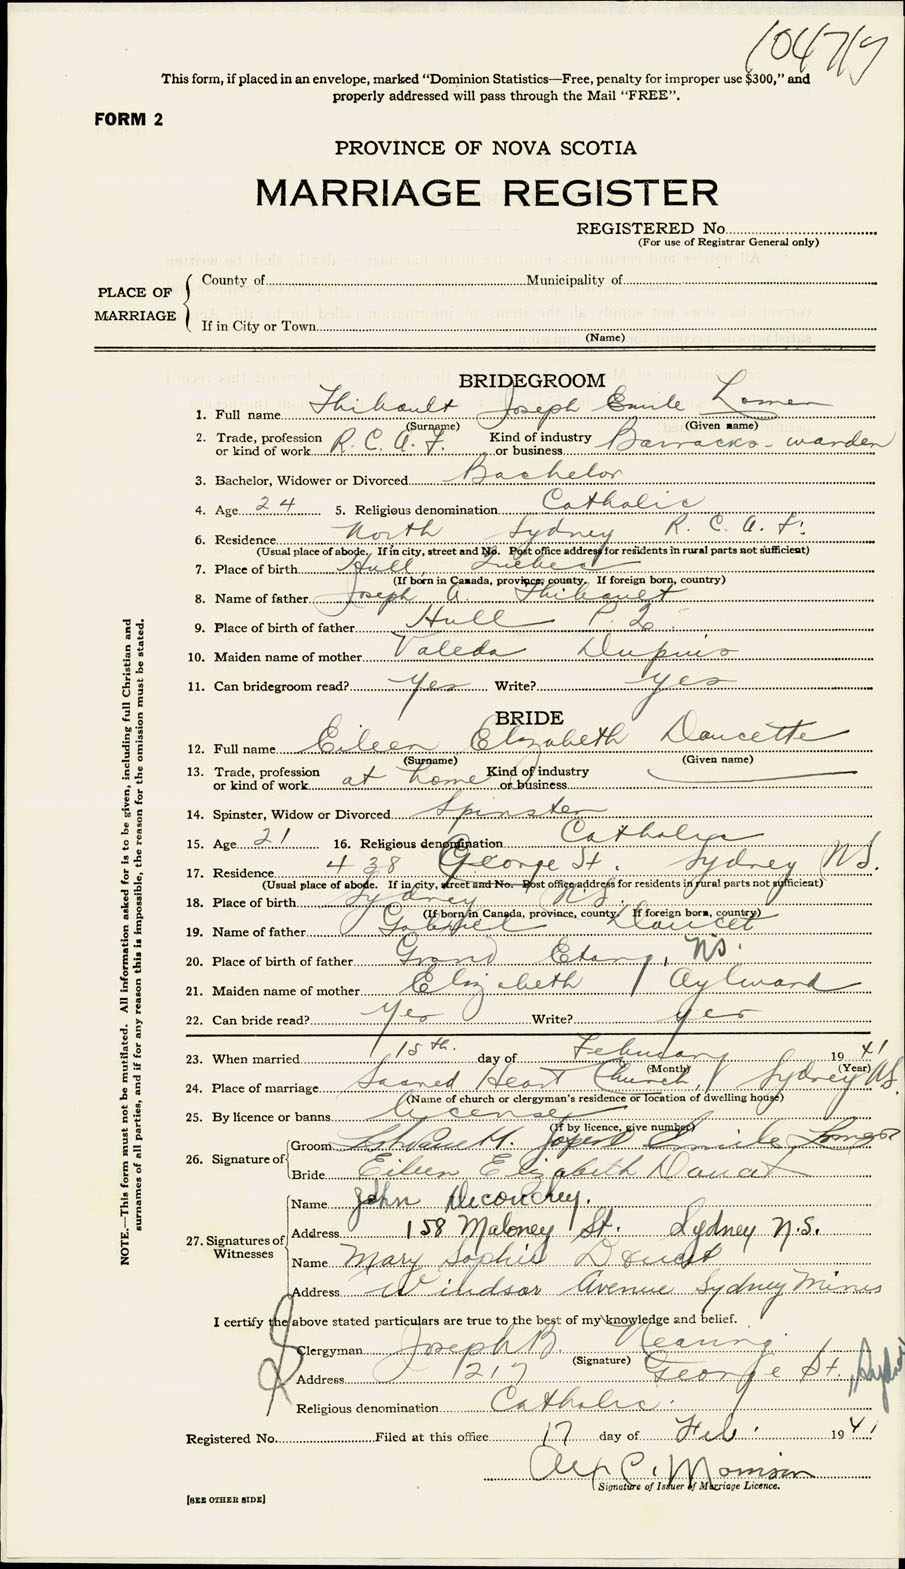 104717
This form, if placed in an envelope, marked “Dominion Statistics—Free, penalty for improper use $300,” and
properly addressed will pass through the Mail “FREE”.
FORM 2
PROVINCE OF NOVA SCOTIA
MARRIAGE REGISTER
REGISTERED No.
(For use of Registrar General only)
PLACE OF MARRIAGE
County of Municipality of
If in City or Town
(Name)
BRIDEGROOM
1. Full name Thibault Joseph Emile
(Surname) (Given name)
2. Trade, profession or kind of work R.C.A.F. Kind of industry or business Barracks-warden
3. Bachelor, Widower or Divorced Bachelor
4. Age 24 5. Religious denomination Catholic
6. Residence North Sydney R.C.A.F.
(Usual place of abode. If in city, street and No. Post office address for residents in rural parts not sufficient)
7. Place of birth Hull, Quebec
(If born in Canada, province, county. If foreign born, country)
8. Name of father Joseph A. Thibault
9. Place of birth of father Hull P.Q.
10. Maiden name of mother Valeda Dupuis
11. Can bridegroom read? Yes Write? yes
BRIDE
12. Full name Eileen Elizabeth Doucette
(Surname) (Given name)
13. Trade, profession or kind of work at home Kind of industry or business
14. Spinster, Widow or Divorced Spinster
15. Age 21 16. Religious denomination Catholic
17. Residence 438 George St. Sydney NS.
(Usual place of abode. If in city, street and No. Post office address for residents in rural parts not sufficient)
18. Place of birth Sydney NS.
(If born in Canada, province, county. If foreign born, country)
19. Name of father Gabriel Doucet
20. Place of birth of father Grand Etang, NS.
21. Maiden name of mother Elizabeth Aylward
22. Can bride read? Yes Write? yes
23. When married 15th. day of February 1941
(Month) (Year)
24. Place of marriage Sacred Heart Church, Sydney NS.
(Name of church or clergyman's residence or location of dwelling house)
25. By licence or banns license
(If by licence, give number)
26. Signature of
Groom Joseph Emile
Bride Eileen Elizabeth Doucet
27. Signatures of Witnesses
Name John Decouchey.
Address 158 Maloney St. Sydney N.S.
Name Mary Sophie Doucet
Address Windsor Avenue Sydney Mines
I certify the above stated particulars are true to the best of my knowledge and belief.
Clergyman Joseph B. Nearing.
(Signature)
Address 217 George St., Sydney
Religious denomination Catholic.
Registered No. Filed at this office 17 day of Feb. 1941
Alex C. Morrison
Signature of Issuer of Marriage Licence.
[SEE OTHER SIDE]
NOTE.—This form must not be mutilated. All information asked for is to be given, including full Christian and
surnames of all parties, and if for any reason this is impossible, the reason for the omission must be stated.